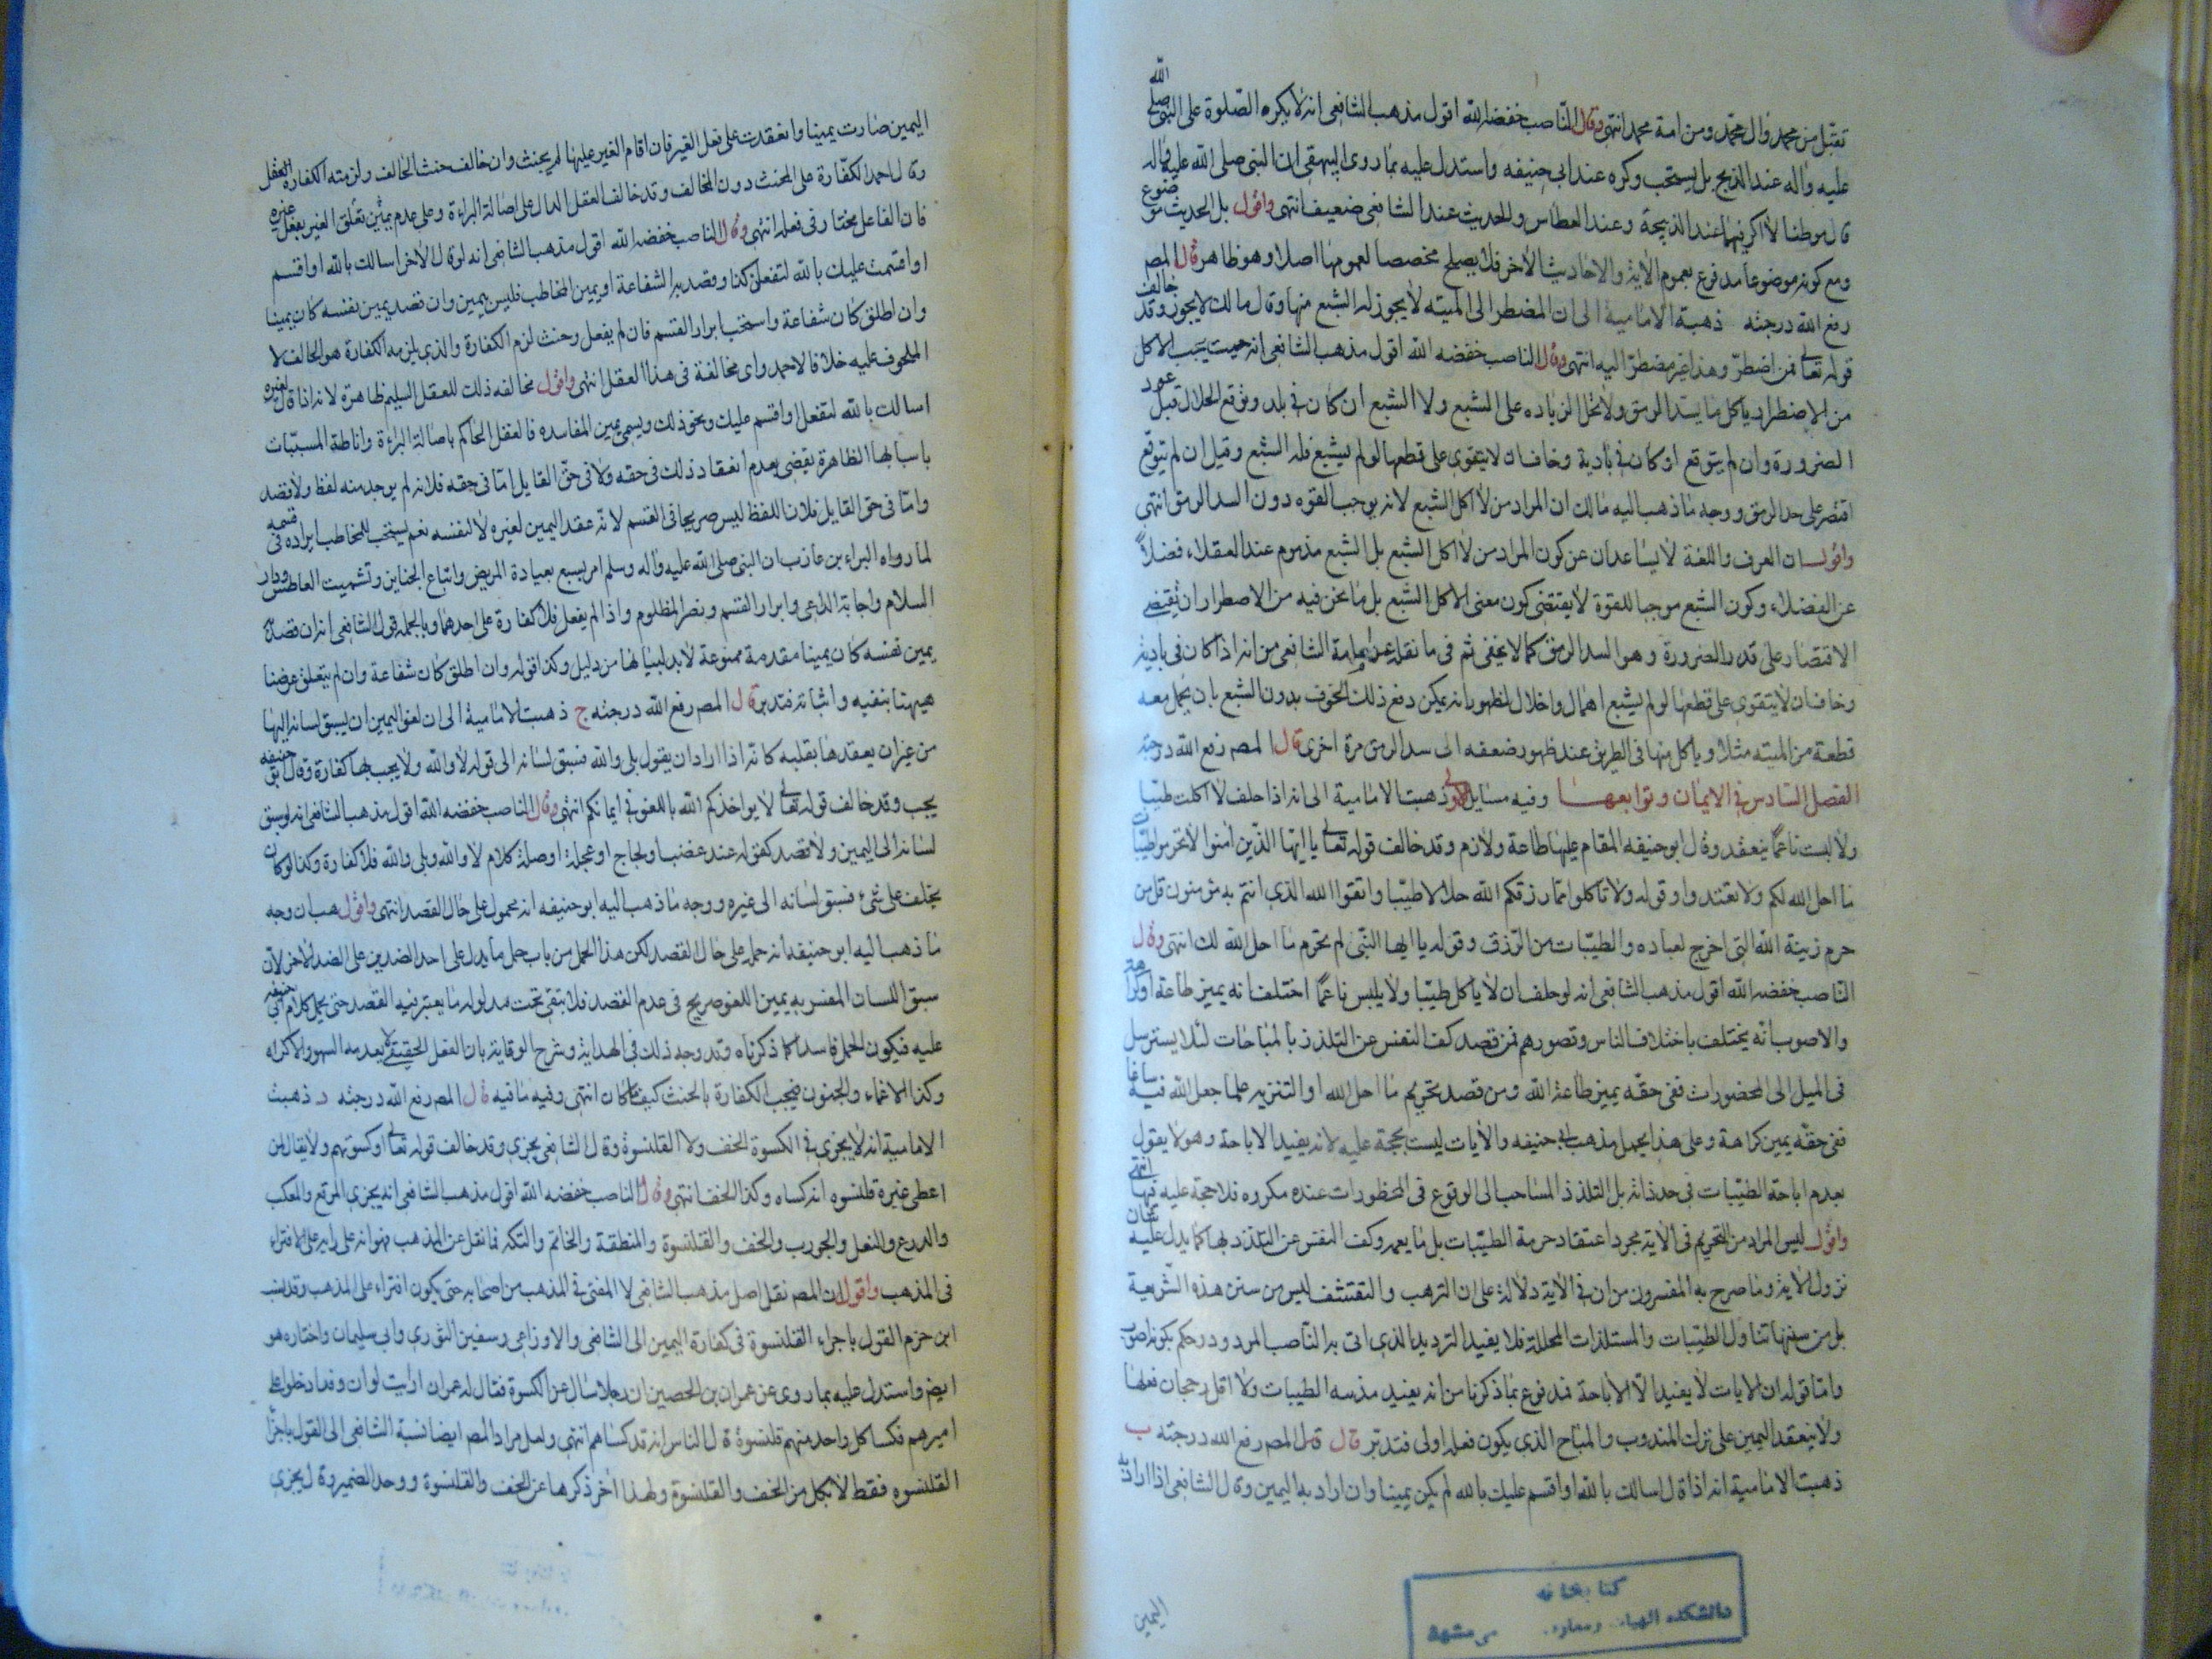 تقبّل من محمد وال محمّد ومن امة محمد انتهى وقال الناصب خفضه الله اقول مذهب الشافعى انه لا يكره الصّلوة على النبى صلى الله
عليه واله عند الذبح بل يستحب وكره عند ابى حنيفه واستدل عليه بما روى البيهقى ان النبى صلى الله عليه واله
قال موطنا لا اذكر فيهما عند الذبيحة وعند العطاس والحديث عند الشافعى ضعيف انتهى واقول بل الحديث موضوع
ومع كونه موضوعا مدفوع بعموم الاية والاحاديث الأخر فلا يصلح مخصصا لعمومها اصلا وهو ظاهر قال المصم
رفع الله درجته ذهبت الامامية الى ان المضطر الى الميته لا يجوز له الشبع منها وقال مالك لا يجوز وقد خالف
قوله تعالى فمن اضطرّ وهذا غير مضطرّ اليه انتهى وقال الناصب خفضه الله اقول مذهب الشافعى انه حيث يجب الاكل
من الاضطرار ياكل ما يسد الرمق ولا تحل الزياده على الشبع ولا الشبع ان كان فى بلد وتوقع الحلال قبل عود
الضرورة وان لم يتوقع او كان فى بادية وخاف ان لا يتقوى على قطعها لو لم يشبع فله الشبع وقيل ان لم يتوقع
اقتصر على سد الرمق ووجه ما ذهب اليه مالك ان المراد من لا اكل الشبع لانه يوجب القوه دون السد الرمق انتهى
واقول ان العرف واللغة لا يساعدان عن كون المراد من لا اكل الشبع بل الشبع مذموم عند العقلاء فضلاً
عن الفضلاء وكون الشبع موجبا للقوة لا يقتضى كون معنى الاكل الشبع بل ما نحن فيه من الاضطرار ان يقتضى
الاقتصار على قدر الضرورة وهو السد الرمق كما لا يخفى ثم فى ما نقله عن امامه الشافعى من انه اذا كان فى بادية
وخاف ان لا يتقوى على قطعها لو لم يشبع اهمال واخلال لظهور انه يمكن دفع ذلك الخوف بدون الشبع بان يحمل معه
قطعة من الميته مثلا وياكل منها فى الطريق عند ظهور ضعفه الى سد الرمق مرة اخرى قال المصم رفع الله درجته
الفصل السّادس فى الايمان وتوابعها وفيه مسايل الاولى ذهبت الامامية الى انه اذا حلف لا اكلت طيّبا
ولا لبست ناعماً ينعقد وقال ابو حنيفه المقام عليها طاعة ولازم وقد خالف قوله تعالى يا ايّها الذّين امنوا لا تحرموا طيّبات
ما احل الله لكم ولا تعتدوا وقوله ولا تاكلوا ممّا رزقكم الله حلالا طيّبا واتقوا الله الذى انتم به مؤمنون قل من
حرم زينة الله التى اخرج لعباده والطيّبات من الرّزق وقوله يا ايها النّبى لم تحرّم ما احل الله لك انتهى وقال
الناصب خفضه الله اقول مذهب الشافعى انه لو حلف ان لا ياكل طيّبا ولا يلبس ناعماً اختلف انه يمين طاعة او كراهة
والاصوب انّه يختلف باختلاف الناس وقصورهم فمن قصد كف النفس عن التلذذ بالمباحات لئلا يسترسل
فى الميل الى المحضورات ففى حقّه يمين طاعة الله ومن قصد تحريم ما احل الله او التنزيه عما جعل الله فيه ساغا
ففى حقّه يمين كراهة وعلى هذا يحمل مذهب ابى حنيفه والأيات ليست بحجة عليه لانه يفيد الاباحة وهو لا يقول
بعدم اباحة الطيّبات فى حد ذاته بل التلذذ المساحب الى الوقوع فى المحظورات عنده مكروه فلا حجة عليه فيها انتهى
واقول ليس المراد من التحريم فى الأية مجرد اعتقاد حرمة الطيّبات بل ما يعمه وكف النفس عن التلذذ بها كما يدل عليه شان
نزول الاية وما صرح به المفسرون من ان فى الاية دلالة على ان الترهب والتقشف ليس من سنن هذه الشّريعة
بل من سننها تناول الطيّبات والمستلذات المحللة فلا يفيد الترديد الذى اتى به الناصب المردود وحكم بكونه اصوب
وامّا قوله ان الايات لا يفيد الّا الاباحة فمدفوع بما ذكرنا من انه يفيد مدسه الطيبات ولا اقل رجحان فعلها
ولا ينعقد اليمين على ترك المندوب والمباح الذى يكون فعله اولى فتدبّر قال قال المصم رفع الله درجته ب
ذهبت الامامية انه اذا قال اسالك بالله او اقسم عليك بالله لم يكن يمينا وان اراد به اليمين وقال الشافعى اذا اراد به
اليمين
كتابخانه
دانشكده الهيات ومعارف مشهد
اليمين صارت يمينا وانعقدت على فعل الغير فان اقام الغير عليها لم يحنث وان خالف حنث الحالف ولزمته الكفارة
وقال احمد الكفّارة على المحنث دون المخالف وقد خالف العقل الدال على اصالة البراءة وعلى عدم يمين تعلق الغير بفعل غيره
فان الفاعل مختار فى فعله انتهى وقال الناصب خفضه الله اقول مذهب الشافعى انه لو قال لاخر اسالك بالله او اقسم
او اقسمت عليك بالله لتفعلن كذا وقصد به الشفاعة او يمين المخاطب فليس بيمين وان قصد يمين نفسه كان يمينا
وان اطلق كان شفاعة واستحب ابرار القسم فان لم يفعل وحنث لزم الكفارة والذى يلزمه الكفارة هو الحالف لا
المحلوف عليه خلافا لاحمد واى مخالفة فى هذا العقل انتهى واقول مخالفه ذلك للعقل السليم ظاهرة لانه اذا قال لغيره
اسالك بالله لتفعل او اقسم عليك ونحو ذلك ويسمى يمين المفاسده فالعقل الحاكم باصالة البراءة واناطة المسبّبات
باسبابها الظاهرة يقضى بعدم انعقاد ذلك فى حقه ولا فى حقّ القايل امّا فى حقه فلانه لم يوجد منه لفظ ولا قصد
وامّا فى حق القايل فلان اللفظ ليس صريحا فى القسم لانّه عقد اليمين لغيره لا لنفسه نعم يستحب للمخاطب ابراره فى قسمه
لما رواه البراء بن عازب ان النبى صلى الله عليه واله وسلم امر بسبع بعيادة المريض واتباع الجنايز وتشميت العاطس ورد
السلام واجابة الداعى وابرار القسم ونصر المظلوم واذا لم يفعل فلا كفارة على احدهما وبالجمله قول الشافعى انه ان قصد
يمين نفسه كان يمينا مقدمة ممنوعة لا بد لبيانها من دليل وكذا قوله وان اطلق كان شفاعة وان لم يتعلق غرضنا
هيهنا بنفيه واثباته فتدبر قال المصم رفع الله درجته ج ذهبت الامامية الى ان لغو اليمين ان يسبق لسانه اليها
من غير ان يعقدها بقلبه كانّه اذا اراد ان يقول بلى والله فسبق لسانه الى قوله لا والله ولا يجب بها كفارة وقال ابو حنيفه
يجب وقد خالف قوله تعالى لا يواخذكم الله باللغو فى ايمانكم انتهى وقال الناصب خفضه الله اقول مذهب الشافعى انه لو سبق
لسانه الى اليمين ولا قصد كقوله عند غضب او لجاج او عجلة او صلة كلام لا والله وبلى والله فلا كفارة وكذا لو كان
يحلف على شئ فسبق لسانه الى غيره ووجه ما ذهب اليه ابو حنيفه انه محمول على حال القصد انتهى واقول هب ان وجه
ما ذهب اليه ابو حنيفه انه حمله على حال القصد لكن هذا الحمل من باب حمل ما يدل على احد الضدين على الضد الأخر لان
سبق اللسان المفسر به يمين اللغو صريح فى عدم القصد فلا يبقى تحت مدلوله ما يعتبر فيه القصد حتى يحمل كلام ابى حنيفه
عليه فيكون الحمل فاسدا كما ذكرناه وقد وجه ذلك فى الهداية وشرح الوقاية بان الفعل الحقيقى لا يعدمه السهو والاكراه
وكذا الاغماء والجنون فيجب الكفارة بالحنث كيف ما كان انتهى وفيه ما فيه قال المصم رفع الله درجته د ذهبت
الامامية انه لا يجزى فى الكسوة الخف ولا القلنسوة وقال الشافعى يجزى وقد خالف قوله تعالى او كسوتهم ولا يقال لمن
اعطى غيره قلنسوه انه كساه وكذا الخف انتهى وقال الناصب خفضه الله اقول مذهب الشافعى انه يجزى المرقع والمعكب
والدرع والنعل والجورب والخف والقلنسوة والمنطقة والخاتم والتكه فما نقل عن المذهب فهو انه على رايه على الافتراء
فى المذهب واقول ان المصم نقل اصل مذهب الشافعى لا المفتى فى المذهب من اصحابه حتى يكون افتراء على المذهب وقد نسب
ابن حزم القول باجراء القلنسوة فى كفارة اليمين الى الشافعى والاوزاعى وسفين الثورى وابى سليمان واختاره هو
ايضم واستدل عليه بما روى عن عمران بن الحصين ان رجلا سأل عن الكسوة فقال له عمران ارايت لو ان وفدا دخلوا على
اميرهم فكسا كل واحد منهم قلنسوة قال الناس انه قد كساهم انتهى ولعل مراد المصم ايضا نسبة الشافعى الى القول باجزاء
القلنسوه فقط لا بكل من الخف والقلنسوة ولهذا اخر ذكرها عن الخف والقلنسوة ووحد الضمير وقال يجزى